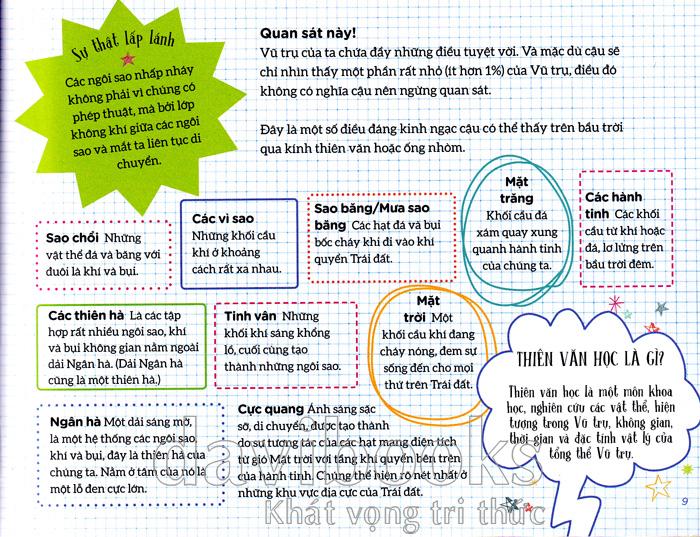 Sự thật lấp lánh
Các ngôi sao nhấp nháy
không phải vì chúng có
phép thuật, mà bởi lớp
không khí giữa các ngôi
sao và mắt ta liên tục di
chuyển.
Quan sát này!
Vũ trụ của ta chứa đầy những điều tuyệt vời. Và mặc dù cậu sẽ
chỉ nhìn thấy một phần rất nhỏ (ít hơn 1%) của Vũ trụ, điều đó
không có nghĩa cậu nên ngừng quan sát.
Đây là một số điều đáng kinh ngạc cậu có thể thấy trên bầu trời
qua kính thiên văn hoặc ống nhòm.
Sao chổi Những
vật thể đá và băng với
đuôi là khí và bụi.
Các vì sao
Những khối cầu
khí ở khoảng
cách rất xa nhau.
Sao băng/Mưa sao
băng Các hạt đá và bụi
bốc cháy khi đi vào khí
quyển Trái đất.
Mặt
trăng
Khối cầu đá
xám quay xung
quanh hành tinh
của chúng ta.
Các hành
tinh Các khối
cầu từ khí hoặc
đá, lơ lửng trên
bầu trời đêm.
Các thiên hà Là các tập
hợp rất nhiều ngôi sao, khí
và bụi không gian nằm ngoài
dải Ngân hà. (Dải Ngân hà
cũng là một thiên hà.)
Tinh vân Những
khối khí sáng khổng
lồ, cuối cùng tạo
thành những ngôi sao.
Mặt
trời Một
khối cầu khí đang
cháy nóng, đem sự
sống đến cho mọi
thứ trên Trái đất.
THIÊN VĂN HỌC LÀ GÌ?
Thiên văn học là một môn khoa
học, nghiên cứu các vật thể, hiện
tượng trong Vũ trụ, không gian,
thời gian và đặc tính vật lý của
tổng thể Vũ trụ.
Ngân hà Một dải sáng mờ,
là một hệ thống các ngôi sao,
khí và bụi, đây là thiên hà của
chúng ta. Nằm ở tâm của nó là
một lỗ đen cực lớn.
Cực quang Ánh sáng sặc
sỡ, di chuyển, được tạo thành
do sự tương tác của các hạt mang điện tích
từ gió Mặt trời với tầng khí quyển bên trên
của hành tinh. Chúng thể hiện rõ nét nhất ở
những khu vực địa cực của Trái đất.
davibooks
Khát vọng tri thức
9